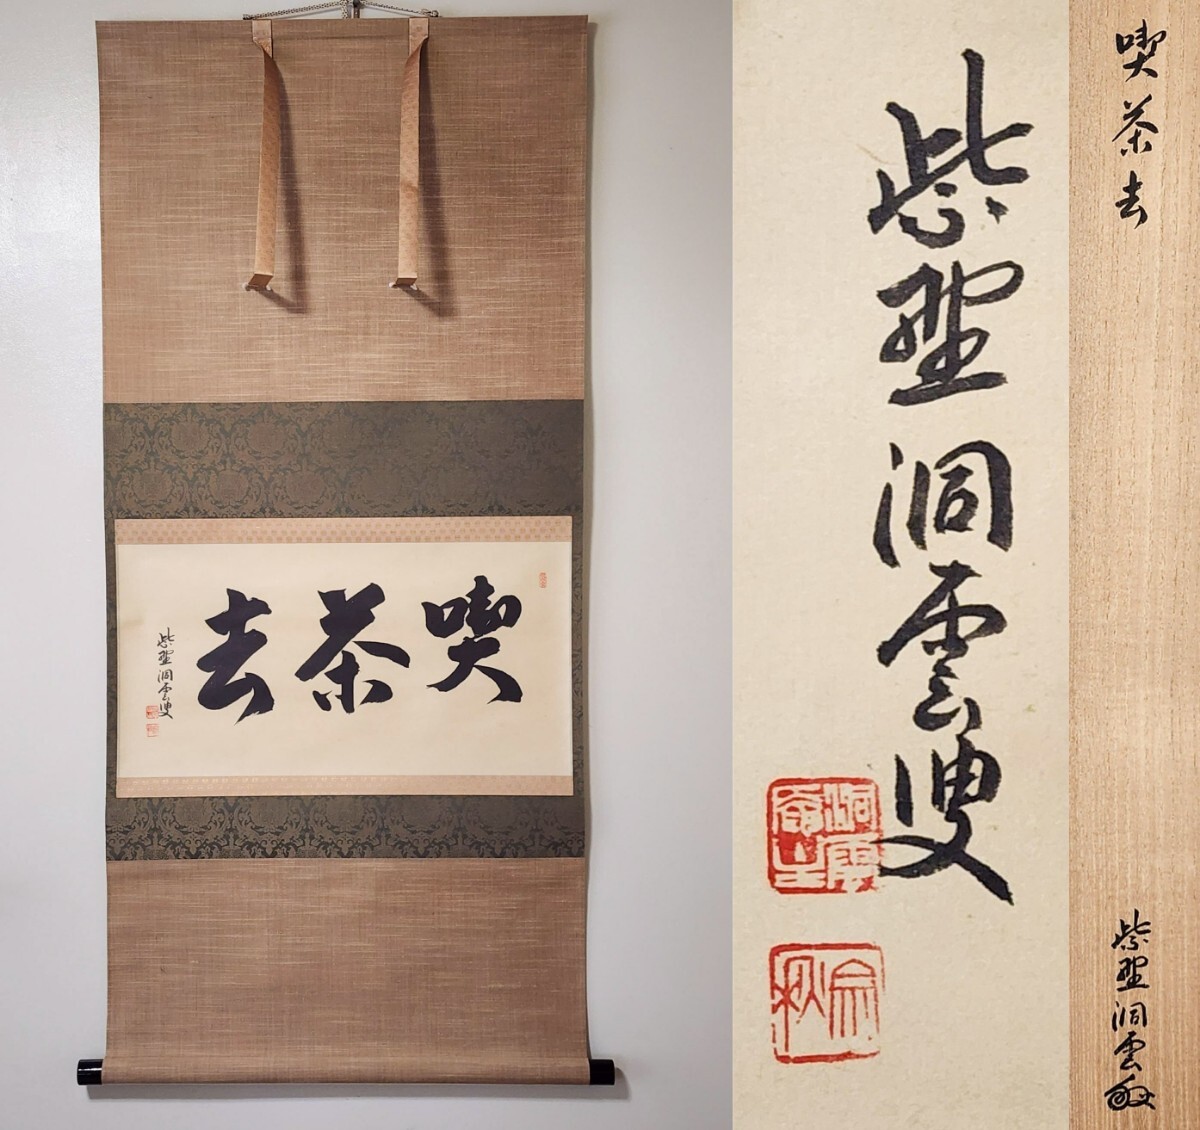 喫茶去
紫野洞雲叟
紫野洞雲叟
洞雲
喫茶去
紫野洞雲